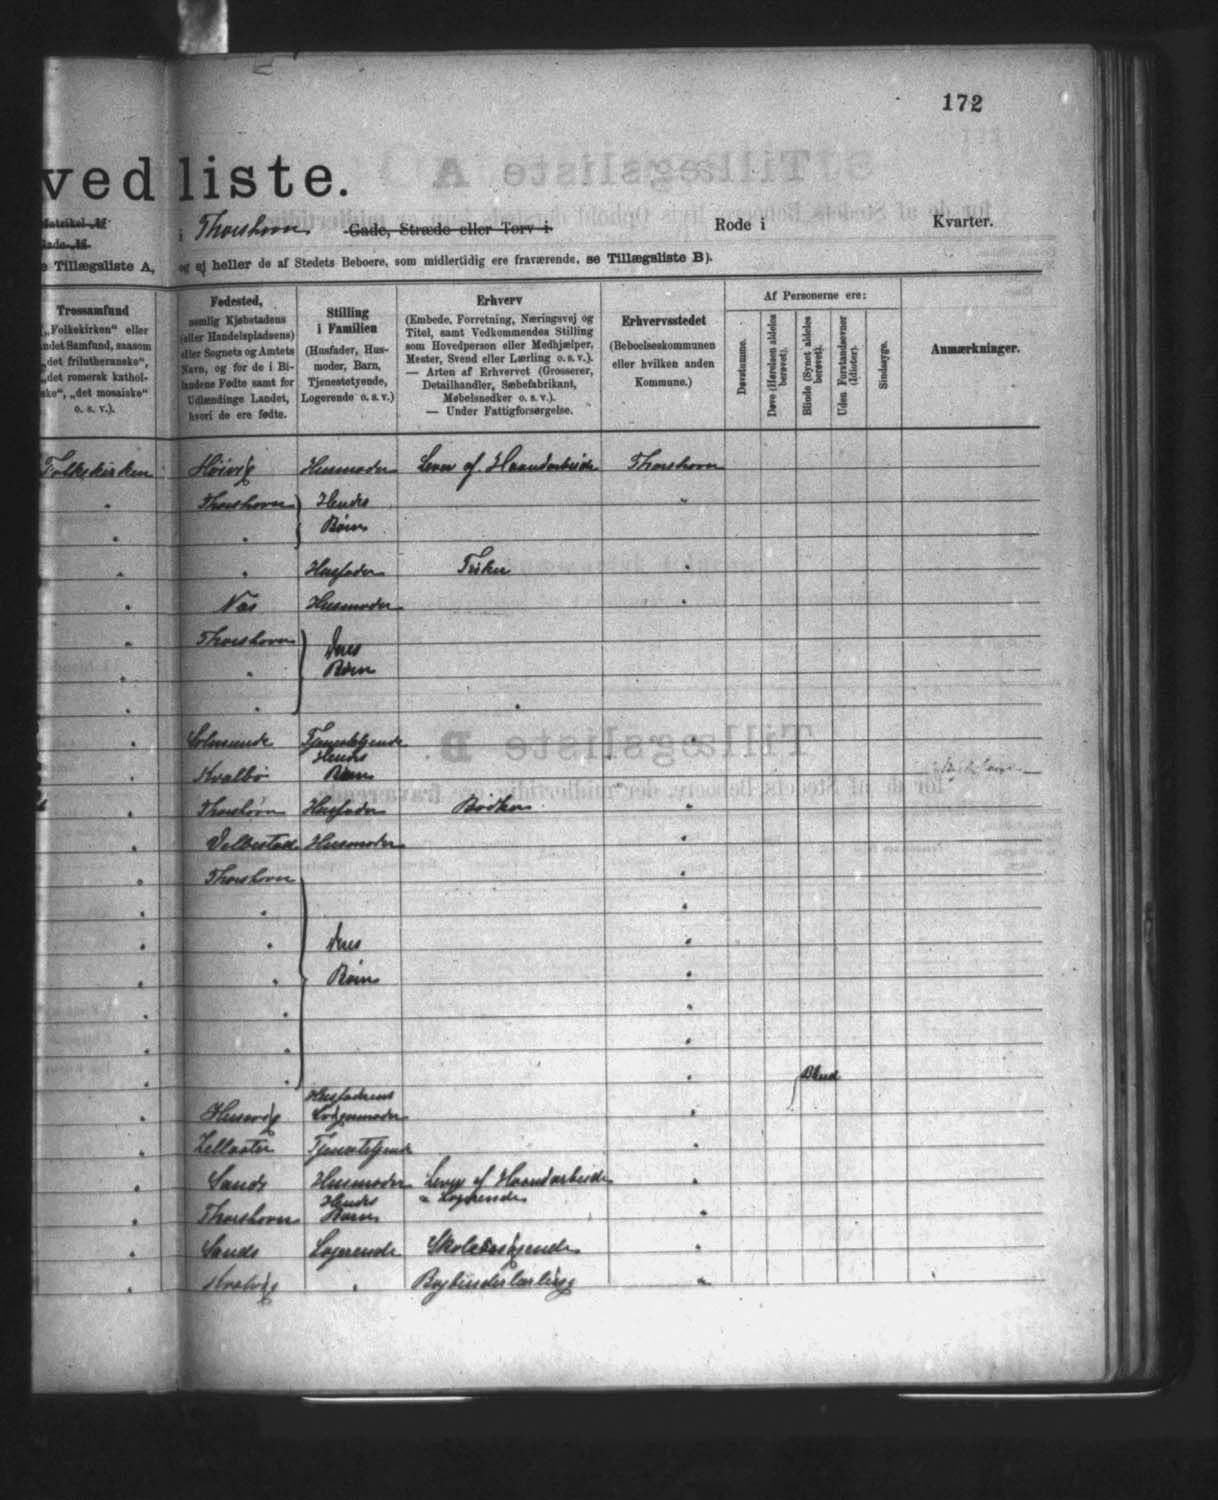 172
vedliste.
Matrikel №
i Thorshavn Gade, Stræde eller Torv i Rode i Kvarter.
Gade №
e Tillægsliste A, og ej heller de af Stedets Beboere, som midlertidig ere fraværende, se Tillægsliste B).
Trossamfund
(„Folkekirken“ eller
andet Samfund, saasom
„det frilutheranske“,
„det romersk kathol-
ske“, „det mosaiske“
o. s. v.).
Fødested,
nemlig Kjøbstadens
(eller Handelspladsens)
eller Sognets og Amtets
Navn, og for de i Bi-
landene Fødte samt for
Udlændinge Landet,
hvori de ere fødte.
Stilling
i Familien
(Husfader, Hus-
moder, Barn,
Tjenestetyende,
Logerende o. s. v.)
Erhverv
(Embede, Forretning, Næringsvej og
Titel, samt Vedkommendes Stilling
som Hovedperson eller Medhjælper,
Mester, Svend eller Lærling o. s. v.).
— Arten af Erhvervet (Grosserer,
Detailhandler, Sæbefabrikant,
Møbelsnedker o. s. v.).
— Under Fattigforsørgelse.
Erhvervsstedet
(Beboelseskommunen
eller hvilken anden
Kommune.)
Af Personerne ere:
Døvstumme.
Døve (Hørelsen aldeles
berøvet).
Blinde (Synet aldeles
berøvet).
Uden Forstandsevner
(Idioter).
Sindssyge.
Anmærkninger.
Folkekirken Høivig Husmoder Lever af Haandarbeide Thorshavn
" Thorshavn Hendes "
" " Børn
" " Husfader Fisker "
" Næs Husmoder "
" Thorshavn Deres
" " Børn
" " "
" Tjenestetyende "
" Kvalbø Hendes Barn
" Thorshavn Husfader Bødker "
" Velbestad Husmoder "
" Thorshavn "
" " "
" " Deres "
" " Børn "
" " "
" " "
" " " Blind
" Husevig Husfaderens Svigermoder "
" Tjenestetyende "
" Sands Husmoder Lever af Haandarbeide "
" Thorshavn Hendes Barn " Logerende "
" Sands Logerende Skolesøgende "
" Kvalvig " Bogbinderlærling "